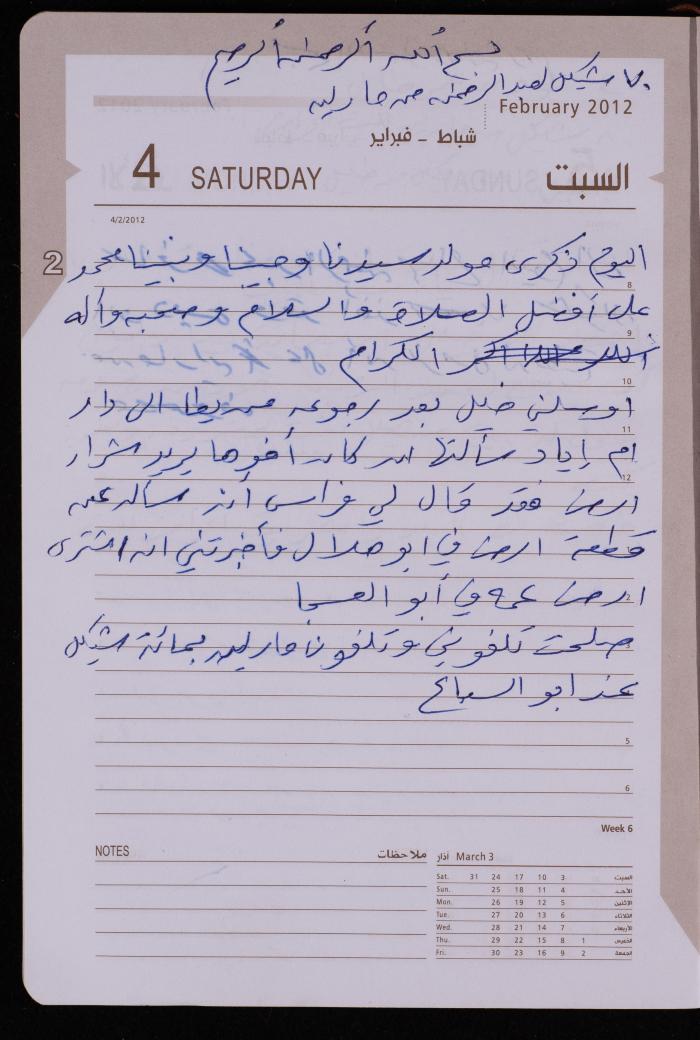 بسم الله الرحمن الرحيم
٧٠ شيكل لعبد الرحمن من مارلين
February 2012
شباط - فبراير
4 SATURDAY السبت
4/2/2012
2
اليوم ذكرى مولد سيدنا وحبيبنا ونبينا محمد
8
على أفضل الصلاة والسلام وصحبه وآله
9
الكرام
10
اوصلني خليل بعد رجوعه الى دار
11
ام إياد سألتها ان كان أخوها يريد شراء
12
ارض فقد قال لي فراس أنه سأله عن
قطعة ارض في ابو هلال فأخبرتني انه اشترى
ارض عمه في أبو العسجا
2
صلحت تلفوني وتلفون مارلين بمائة شيكل
3
عند ابو السباع
5
6
Week 6
NOTES ملاحظات
March 3 آذار
Sat. 31 24 17 10 3 السبت
Sun. 25 18 11 4 الأحد
Mon. 26 19 12 5 الاثنين
Tue. 27 20 13 6 الثلاثاء
Wed. 28 21 14 7 الأربعاء
Thu. 29 22 15 8 1 الخميس
Fri. 30 23 16 9 2 الجمعة